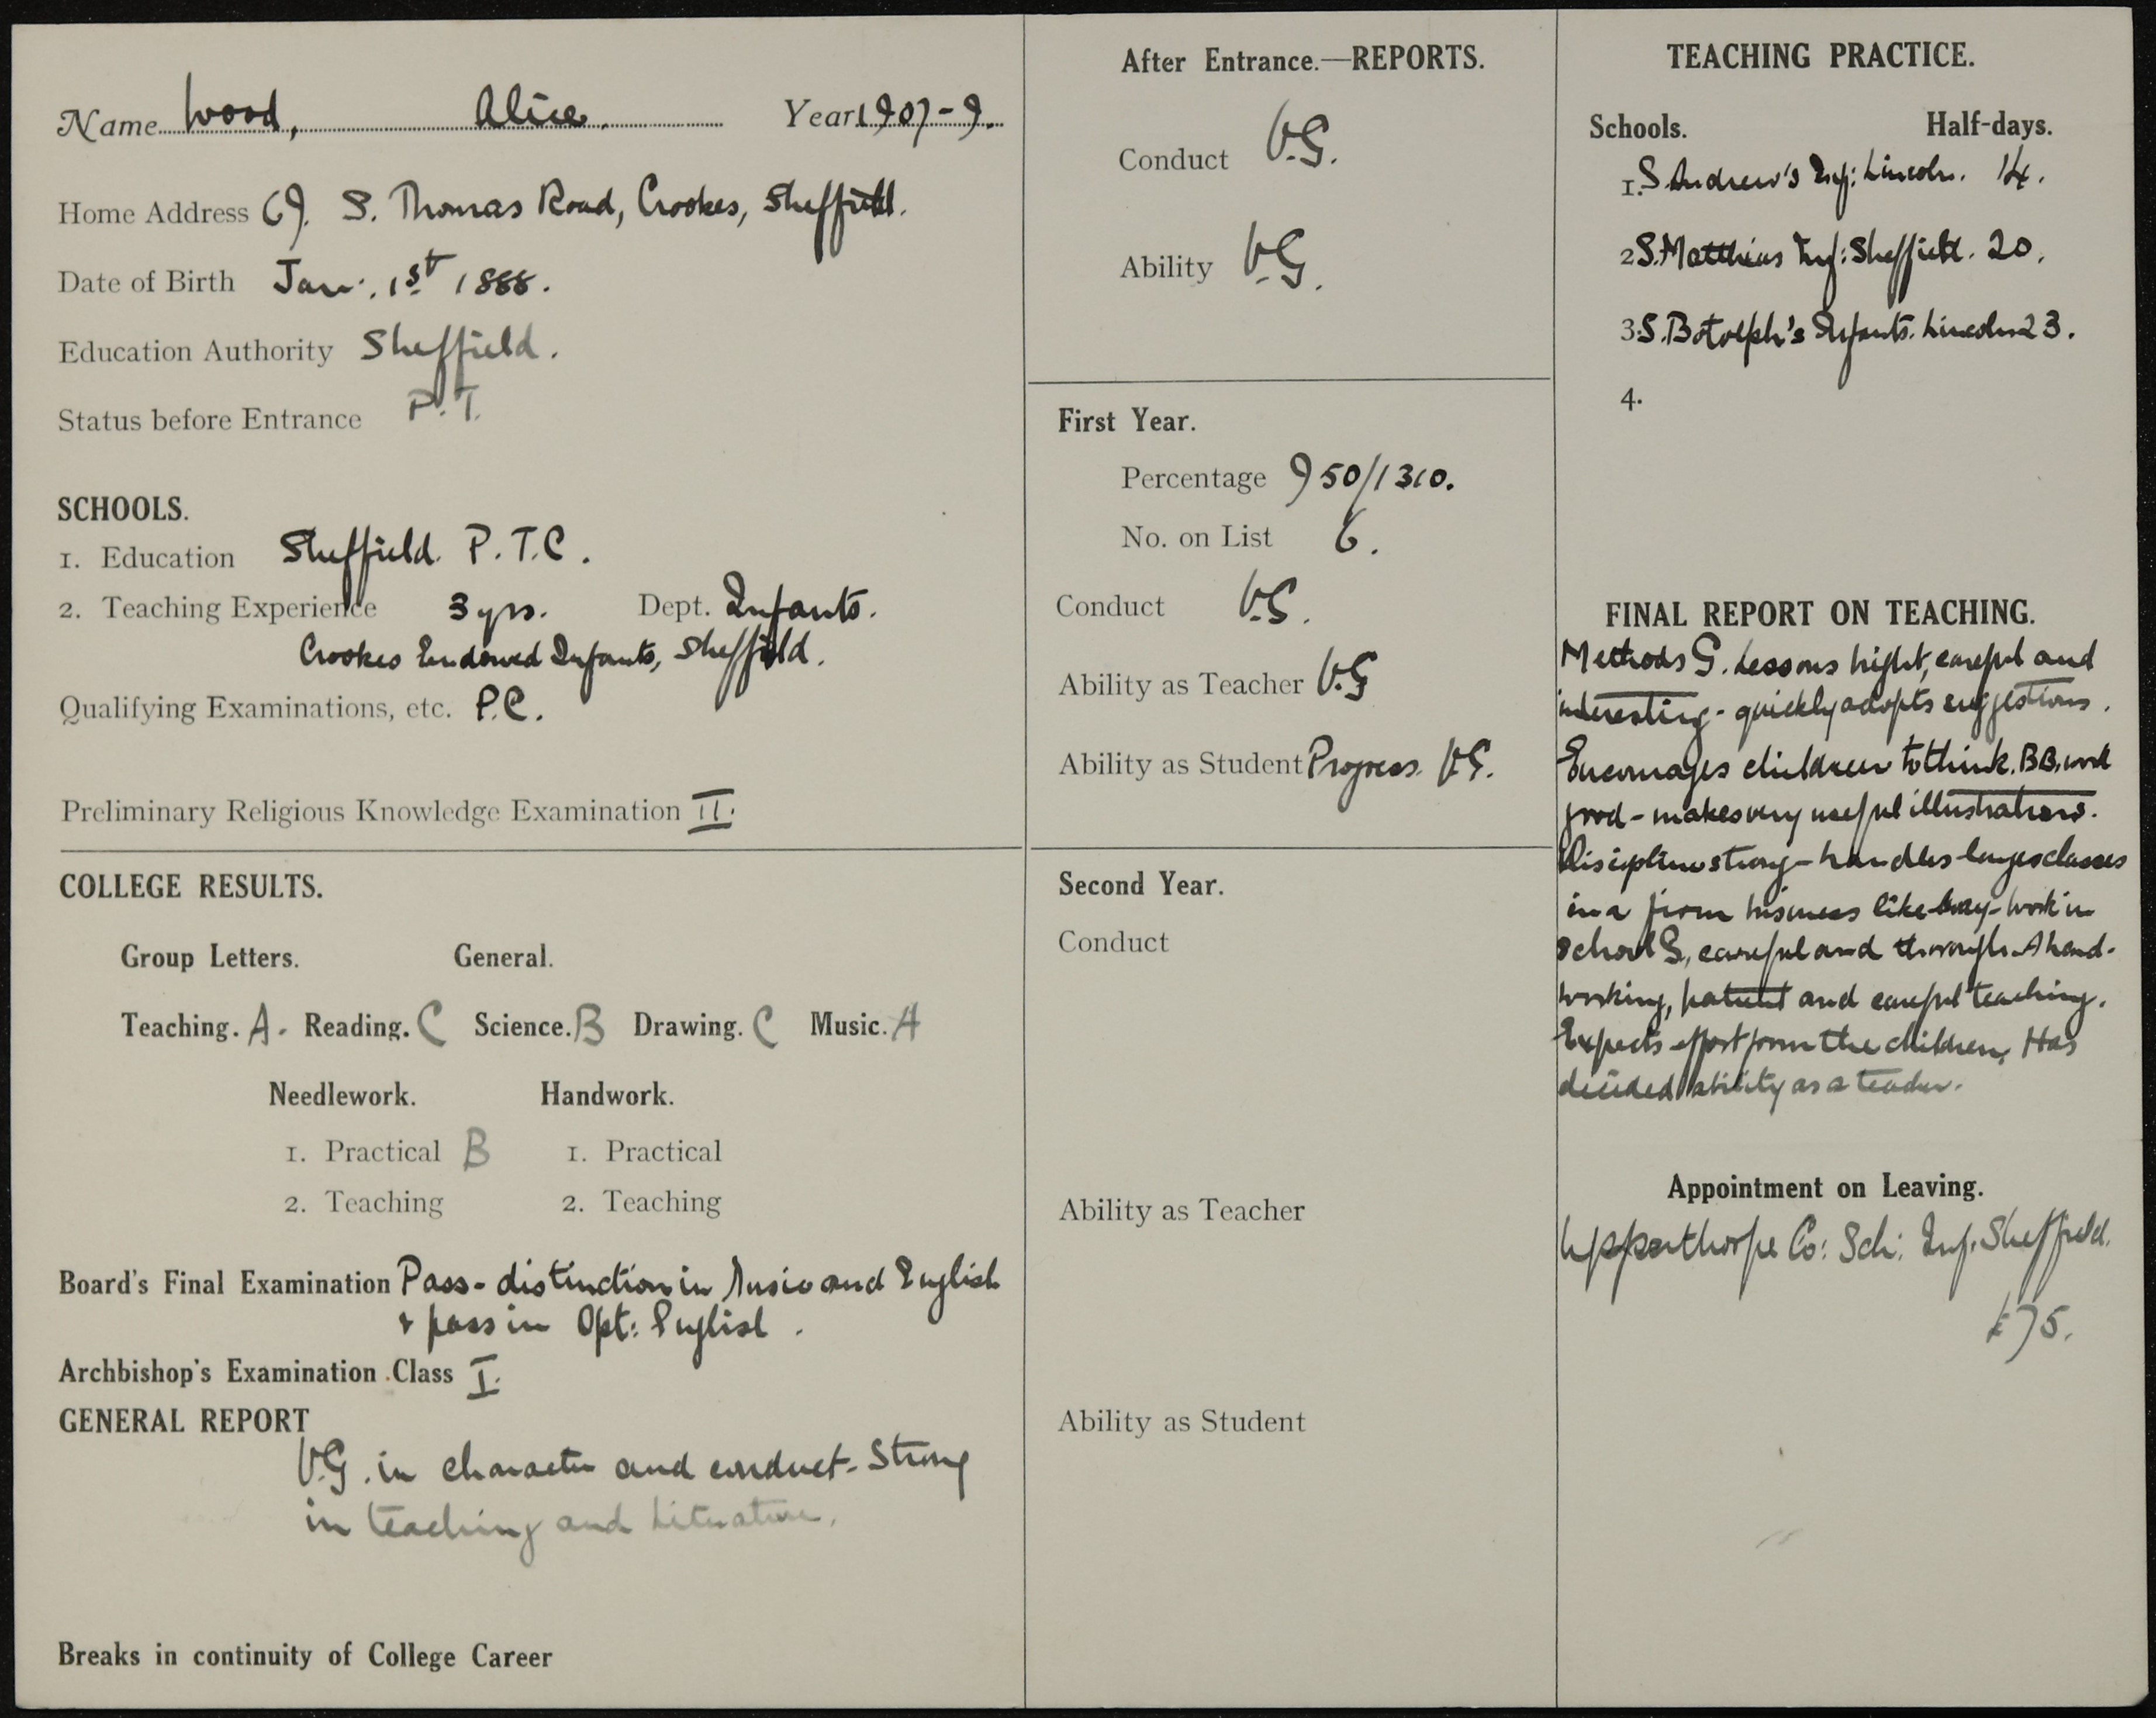 Name Wood, Alice. Year 1907-9.
Home Address 69. S. Thomas Road, Crookes, Sheffield.
Date of Birth Jan. 1st 1888.
Education Authority Sheffield.
Status before Entrance P.T.
SCHOOLS.
1. Education Sheffield. P.T.C.
2. Teaching Experience 3 yrs. Dept. Infants.
Crookes Endowed Infants, Sheffield.
Qualifying Examinations, etc. P.C.
Preliminary Religious Knowledge Examination II.
COLLEGE RESULTS.
Group Letters. General.
Teaching. A. Reading. C Science. B Drawing. C Music. A
Needlework. Handwork.
1. Practical B 1. Practical
2. Teaching 2. Teaching
Board's Final Examination Pass - distinction in Music and English
& pass in Opt: English.
Archbishop's Examination Class I.
GENERAL REPORT
V.G. in character and conduct - Strong
in teaching and Literature.
Breaks in continuity of College Career
After Entrance.—REPORTS.
Conduct V.G.
Ability V.G.
First Year.
Percentage 950/1310.
No. on List 6.
Conduct V.G.
Ability as Teacher V.G
Ability as Student Progress. V.G.
Second Year.
Conduct
Ability as Teacher
Ability as Student
TEACHING PRACTICE.
Schools. Half-days.
1. S. Andrew's Inf: Lincoln. 14.
2 S. Matthias Inf: Sheffield. 20.
3. S. Botolph's Infants. Lincoln 23.
4.
FINAL REPORT ON TEACHING.
Methods G. Lessons bright, careful and
interesting - quickly adopts suggestions.
Encourages children to think. BB. work
good - makes very useful illustrations.
Discipline strong - handles large classes
in a firm business like way - work in
school G, careful and thorough. A hard-
working, patient and careful teaching.
Expects effort from the children. Has
decided ability as a teacher.
Appointment on Leaving.
Upperthorpe Co: Sch: Inf. Sheffield.
£75.